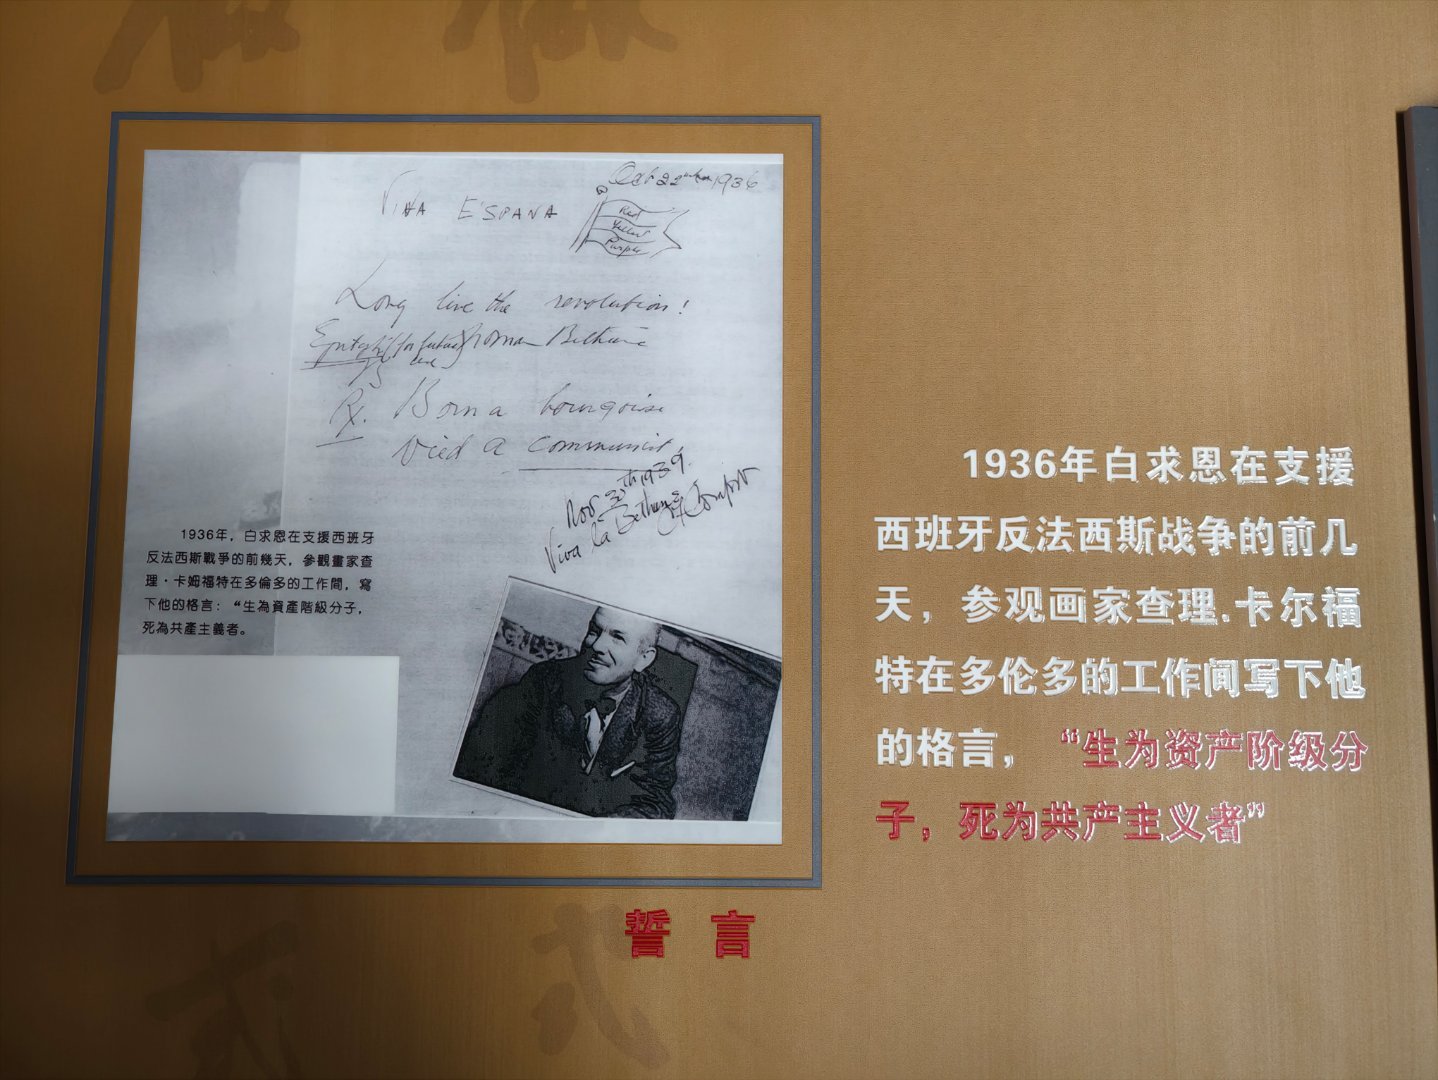 Oct 22 1936
VIVA ESPANA
Red
Yellow
Purple
Long live the revolution!
(for future use)
Norman Bethune
Rx. Born a bourgoise
Died a communist
Nov 30th 1939.
Viva la Bethune
1936年，白求恩在支援西班牙
反法西斯戰爭的前幾天，參觀畫家查
理·卡姆福特在多倫多的工作間，寫
下他的格言：“生為資產階級分子，
死為共產主義者。
誓言
1936年白求恩在支援
西班牙反法西斯战争的前几
天，参观画家查理.卡尔福
特在多伦多的工作间写下他
的格言，“生为资产阶级分
子，死为共产主义者”